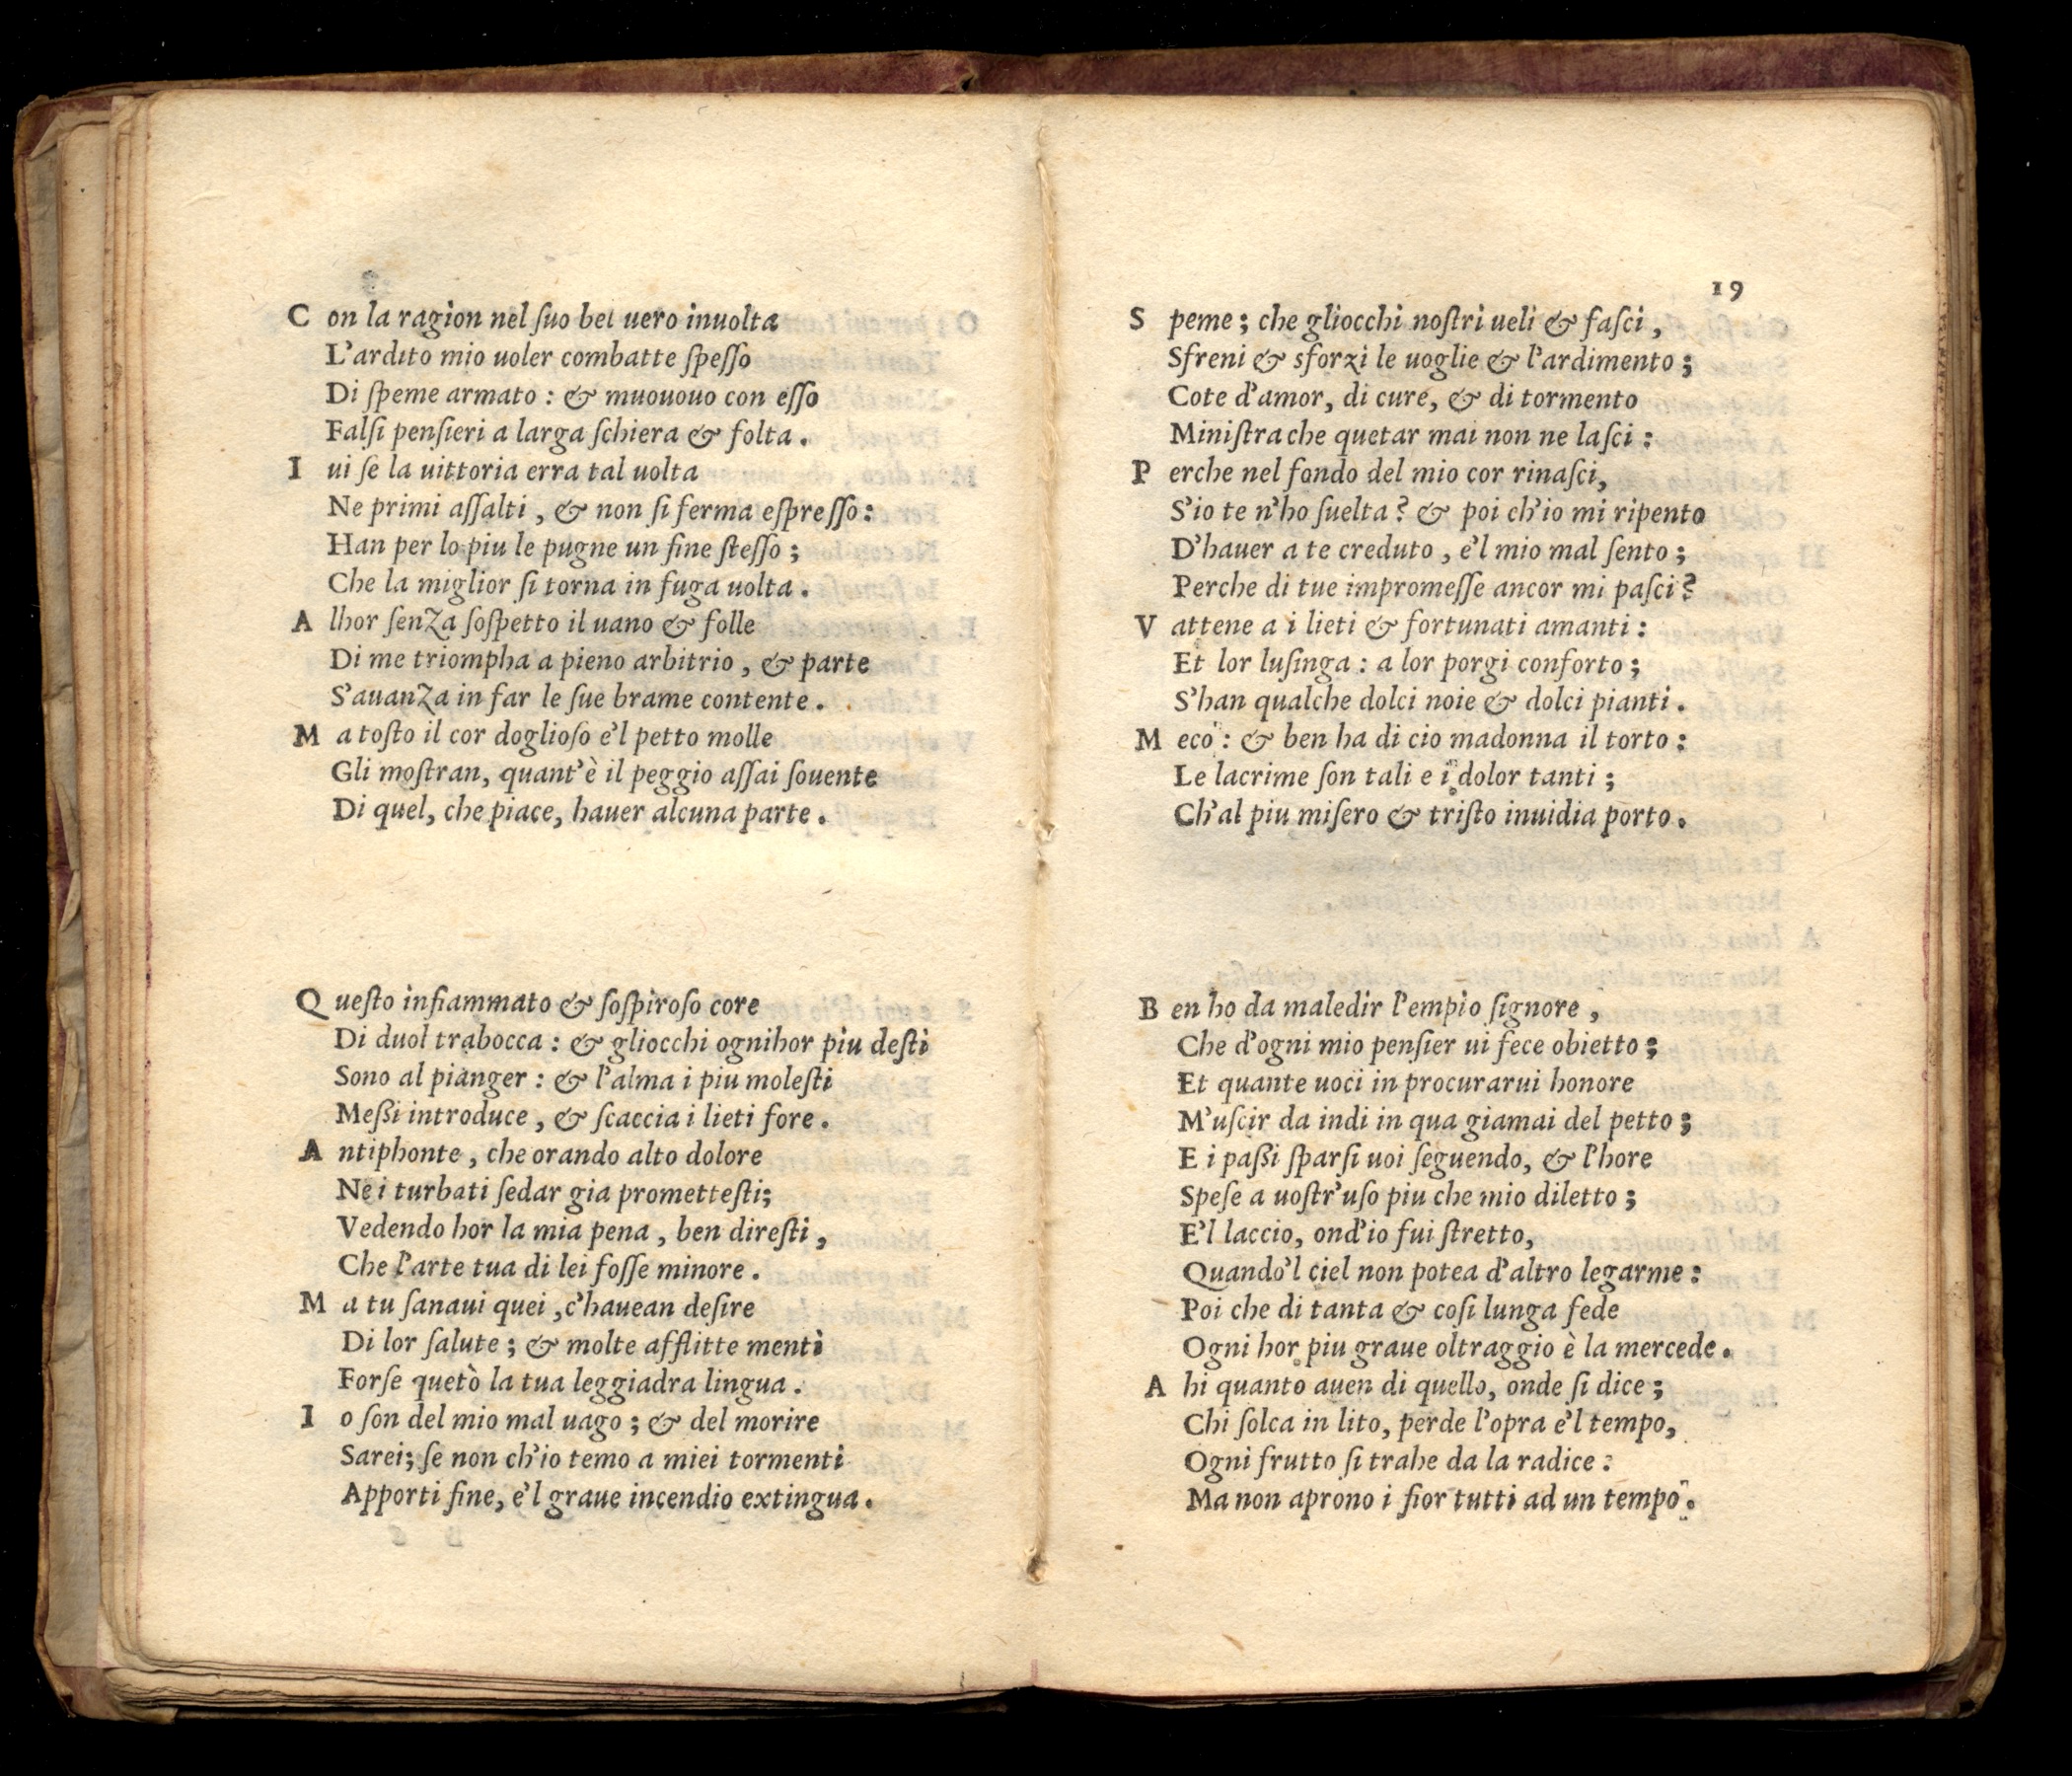 C on la ragion nel ſuo bel uero inuolta
L'ardito mio uoler combatte ſpeſſo
Di ſpeme armato : & muououo con eſſo
Falſi penſieri a larga ſchiera & folta .
I ui ſe la uittoria erra tal uolta
Ne primi aſſalti , & non ſi ferma eſpreſſo :
Han per lo piu le pugne un fine ſteſſo ;
Che la miglior ſi torna in fuga uolta .
A lhor ſenza ſoſpetto il uano & folle
Di me triompha a pieno arbitrio , & parte
S'auanza in far le ſue brame contente .
M a toſto il cor doglioſo e'l petto molle
Gli moſtran, quant'è il peggio aſſai ſouente
Di quel, che piace, hauer alcuna parte .
Q ueſto infiammato & ſoſpiroſo core
Di duol trabocca : & gliocchi ognihor piu deſti
Sono al pianger : & l'alma i piu moleſti
Meßi introduce , & ſcaccia i lieti fore .
A ntiphonte , che orando alto dolore
Ne i turbati ſedar gia prometteſti;
Vedendo hor la mia pena , ben direſti ,
Che l'arte tua di lei foſſe minore .
M a tu ſanaui quei ,c'hauean deſire
Di lor ſalute ; & molte afflitte menti
Forſe quetò la tua leggiadra lingua .
I o ſon del mio mal uago ; & del morire
Sarei; ſe non ch'io temo a miei tormenti
Apporti fine, e'l graue incendio extingua .
19
S peme ; che gliocchi noſtri ueli & faſci ,
Sfreni & sforzi le uoglie & l'ardimento ;
Cote d'amor, di cure, & di tormento
Miniſtra che quetar mai non ne laſci :
P erche nel fondo del mio cor rinaſci,
S'io te n'ho ſuelta ? & poi ch'io mi ripento
D'hauer a te creduto , e'l mio mal ſento ;
Perche di tue impromeſſe ancor mi paſci ?
V attene a i lieti & fortunati amanti :
Et lor luſinga : a lor porgi conforto ;
S'han qualche dolci noie & dolci pianti .
M eco : & ben ha di cio madonna il torto :
Le lacrime ſon tali e i dolor tanti ;
Ch'al piu miſero & triſto inuidia porto .
B en ho da maledir l'empio ſignore ,
Che d'ogni mio penſier ui fece obietto ;
Et quante uoci in procurarui honore
M'uſcir da indi in qua giamai del petto ;
E i paßi ſparſi uoi ſeguendo, & l'hore
Speſe a uoſtr'uſo piu che mio diletto ;
E'l laccio, ond'io fui ſtretto,
Quando'l ciel non potea d'altro legarme :
Poi che di tanta & coſi lunga fede
Ogni hor piu graue oltraggio è la mercede .
A hi quanto auen di quello, onde ſi dice ;
Chi ſolca in lito, perde l'opra e'l tempo,
Ogni frutto ſi trahe da la radice :
Ma non aprono i fior tutti ad un tempo .